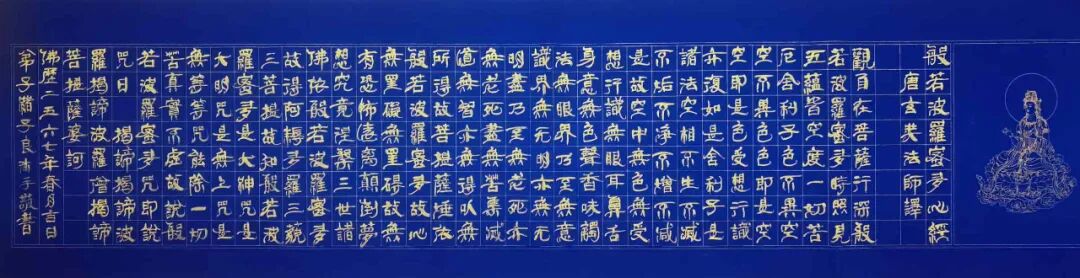 般若波羅蜜多心經
唐玄奘法師譯
觀自在菩薩行深般
若波羅蜜多時照見
五蘊皆空度一切苦
厄舍利子色不異空
空不異色色即是空
空即是色受想行識
亦復如是舍利子是
諸法空相不生不滅
不垢不淨不增不減
是故空中無色無受
想行識無眼耳鼻舌
身意無色聲香味觸
法無眼界乃至無意
識界無無明亦無無
明盡乃至無老死亦
無老死盡無苦集滅
道無智亦無得以無
所得故菩提薩埵依
般若波羅蜜多故心
無罣礙無罣礙故無
有恐怖遠離顛倒夢
想究竟涅槃三世諸
佛依般若波羅蜜多
故得阿耨多羅三藐
三菩提故知般若波
羅蜜多是大神咒是
大明咒是無上咒是
無等等咒能除一切
苦真實不虛故說般
若波羅蜜多咒即說
咒曰 揭諦揭諦波
羅揭諦波羅僧揭諦
菩提薩婆訶
佛曆二五六七年春月吉日
弟子子良沐手敬書